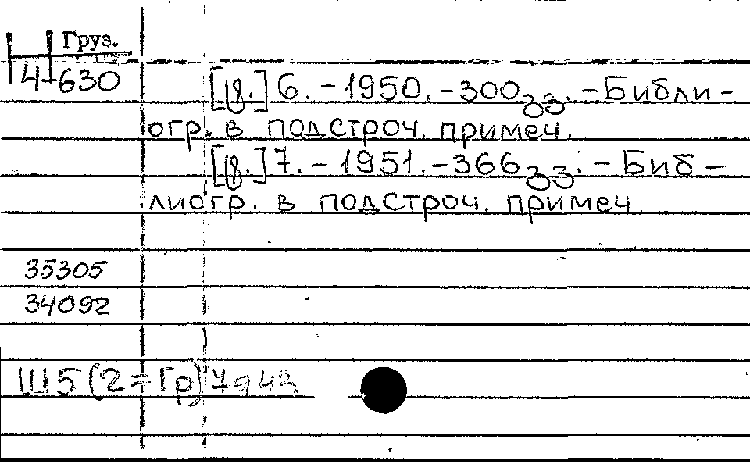 Груз.
4-630
[ტ.] 6. – 1950. – 300 გვ. – Библи-
огр. в подстроч. примеч.
[ტ.] 7. – 1951. – 366 გვ. – Биб-
лиогр. в подстроч. примеч
35305
34092
Ш5(2=Гр)